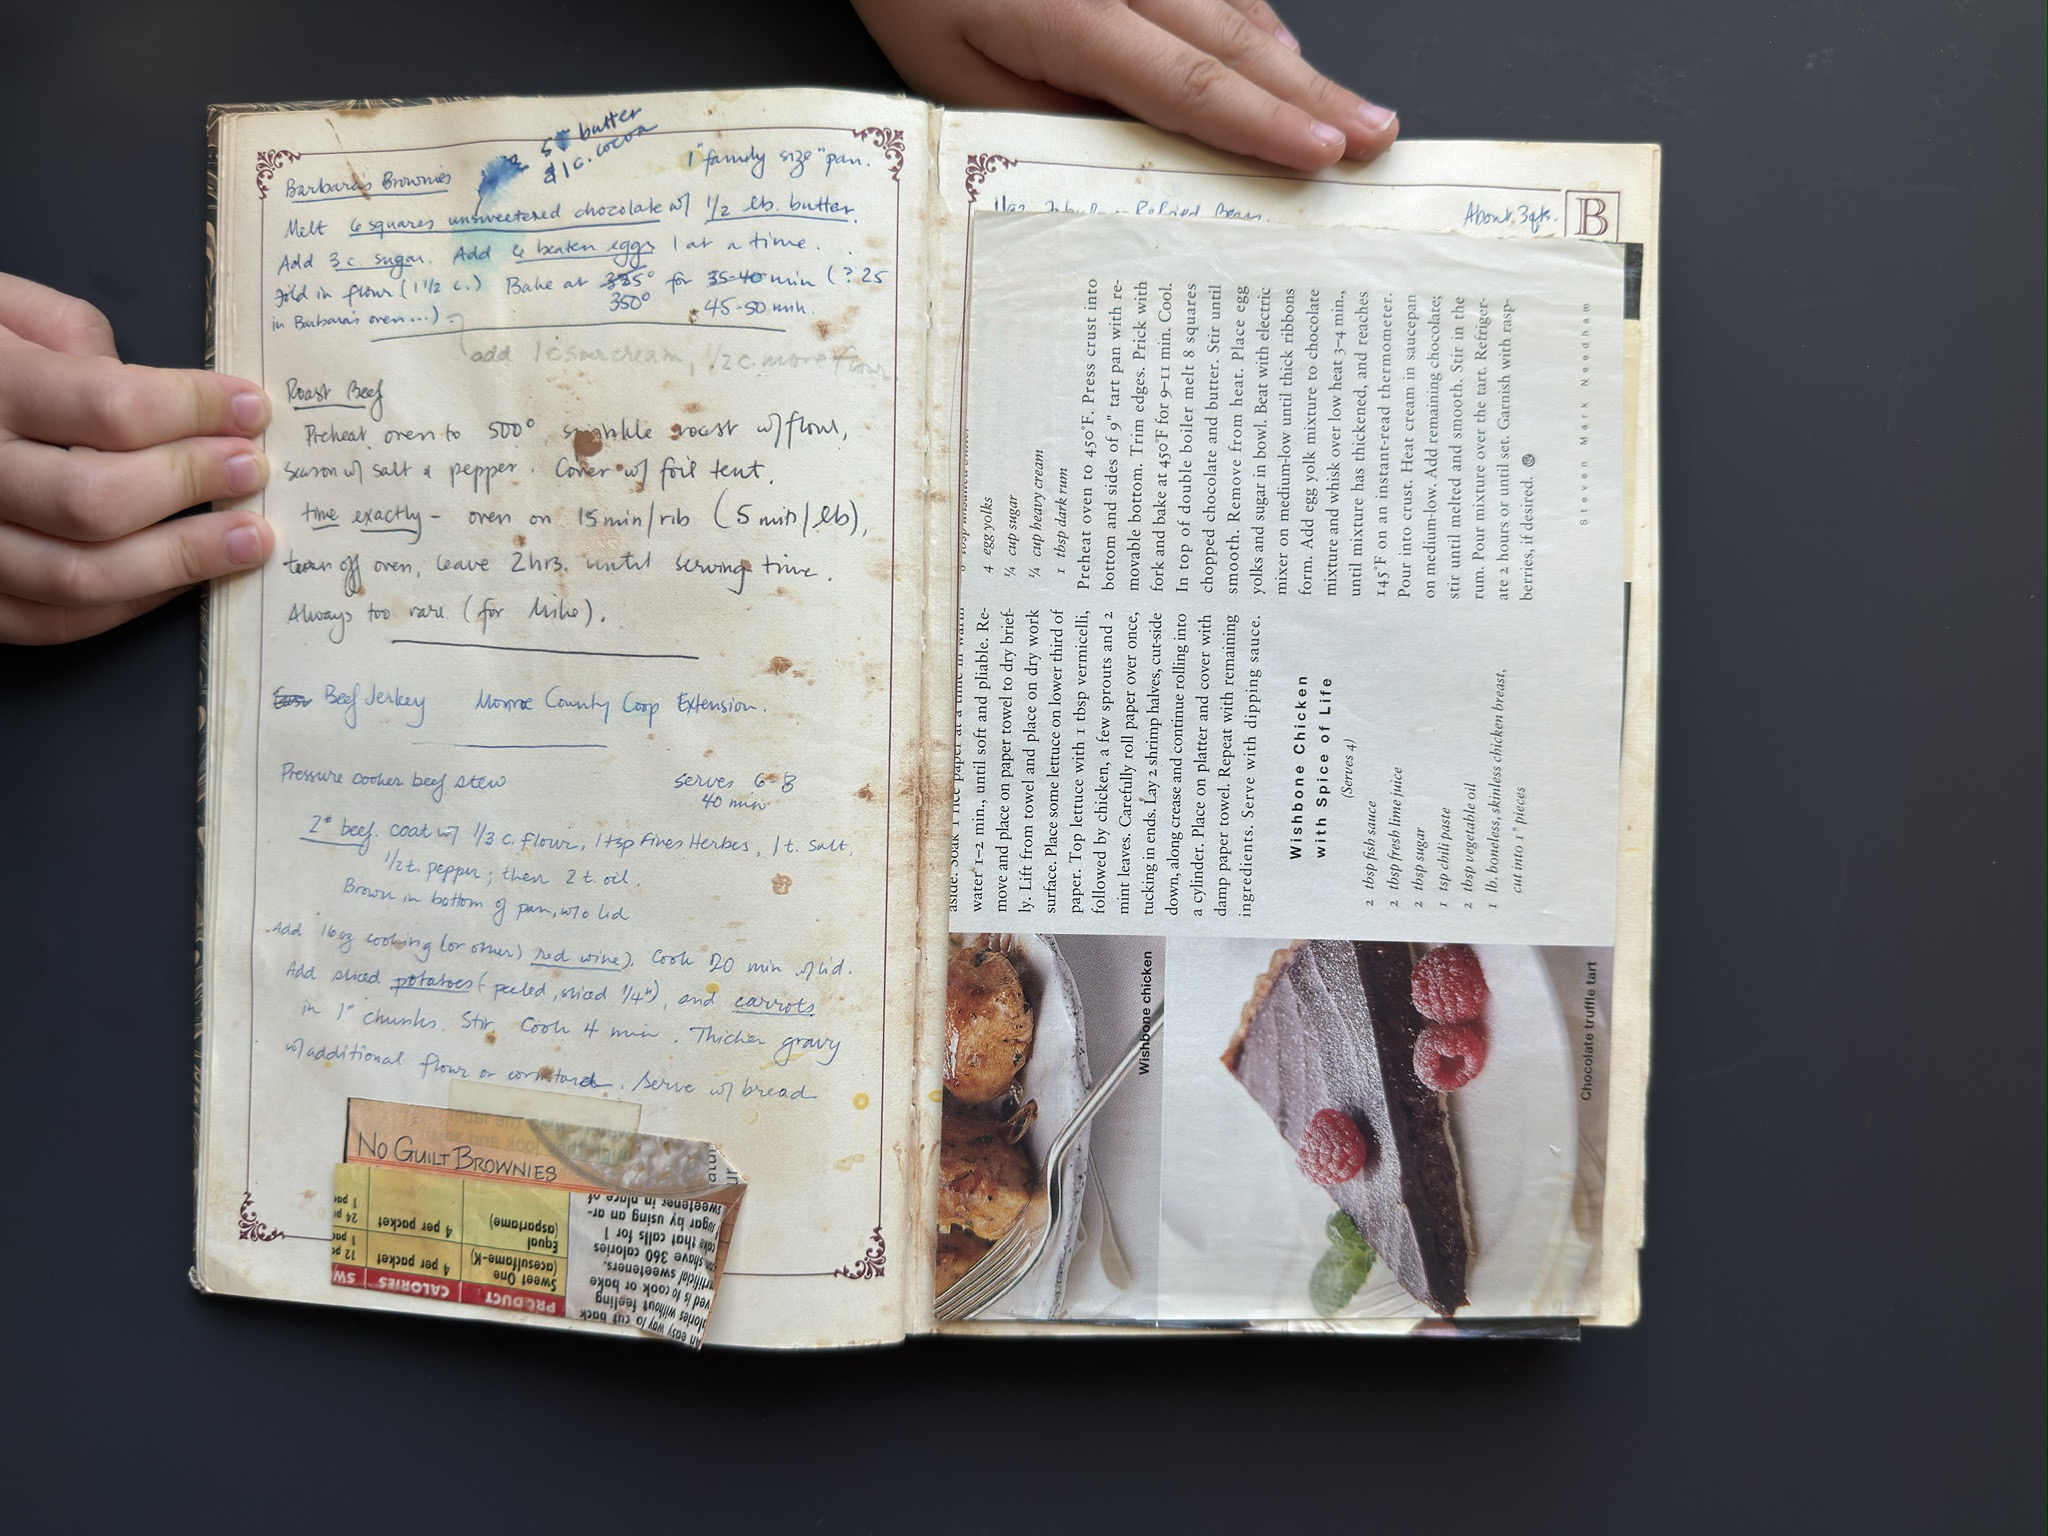 butter
1 c. cocoa
1 "family size" pan.
Barbara's Brownies
Melt 6 squares unsweetened chocolate w/ 1/2 lb. butter.
Add 3 c. sugar. Add 6 beaten eggs 1 at a time.
Fold in flour (1 1/2 c.) Bake at 335° for 35-40 min (? 25
350° 45-50 min.
in Barbara's oven...)
add 1 c sour cream, 1/2 c. more flour
Roast Beef
Preheat oven to 500°, sprinkle roast w/ flour,
Season w/ salt & pepper. Cover w/ foil tent.
time exactly - oven on 15 min/rib (5 min/lb),
turn off oven, leave 2 hrs. until serving time.
Always too rare (for Mike).
Beef Jerkey Monroe County Coop Extension.
Pressure cooker beef stew serves 6-8
40 min
2# beef. coat w/ 1/3 c. flour, 1 tsp Fines Herbes, 1 t. salt,
1/2 t. pepper; then 2 t. oil.
Brown in bottom of pan, w/o lid
Add 16 oz cooking (or other) red wine). Cook 20 min w/ lid.
Add sliced potatoes (peeled, sliced 1/4"), and carrots
in 1" chunks. Stir. Cook 4 min. Thicken gravy
w/ additional flour or cornstarch. Serve w/ bread
NO GUILT BROWNIES
PRODUCT CALORIES SW
Sweet One
(acesulfame-K) 4 per packet 12 pa
1 pac
Equal
(aspartame) 4 per packet 24 pa
1 pac
An easy way to cut back
calories without feeling
ved is to cook or bake
artificial sweeteners.
can shave 360 calories
cake that calls for 1
sugar by using an ar-
sweetener in place of
Refried Beans. About 3 qts.
B
4 egg yolks
¼ cup sugar
¾ cup heavy cream
1 tbsp dark rum
Preheat oven to 450°F. Press crust into
bottom and sides of 9" tart pan with re-
movable bottom. Trim edges. Prick with
fork and bake at 450°F for 9–11 min. Cool.
In top of double boiler melt 8 squares
chopped chocolate and butter. Stir until
smooth. Remove from heat. Place egg
yolks and sugar in bowl. Beat with electric
mixer on medium-low until thick ribbons
form. Add egg yolk mixture to chocolate
mixture and whisk over low heat 3–4 min.,
until mixture has thickened, and reaches
145°F on an instant-read thermometer.
Pour into crust. Heat cream in saucepan
on medium-low. Add remaining chocolate;
stir until melted and smooth. Stir in the
rum. Pour mixture over the tart. Refriger-
ate 2 hours or until set. Garnish with rasp-
berries, if desired.
Steven Mark Needham
aside. Soak 1 rice paper at a time in warm
water 1–2 min., until soft and pliable. Re-
move and place on paper towel to dry brief-
ly. Lift from towel and place on dry work
surface. Place some lettuce on lower third of
paper. Top lettuce with 1 tbsp vermicelli,
followed by chicken, a few sprouts and 2
mint leaves. Carefully roll paper over once,
tucking in ends. Lay 2 shrimp halves, cut-side
down, along crease and continue rolling into
a cylinder. Place on platter and cover with
damp paper towel. Repeat with remaining
ingredients. Serve with dipping sauce.
Wishbone Chicken
with Spice of Life
(Serves 4)
2 tbsp fish sauce
2 tbsp fresh lime juice
2 tbsp sugar
1 tsp chili paste
2 tbsp vegetable oil
1 lb. boneless, skinless chicken breast,
cut into 1" pieces
Wishbone chicken
Chocolate truffle tart